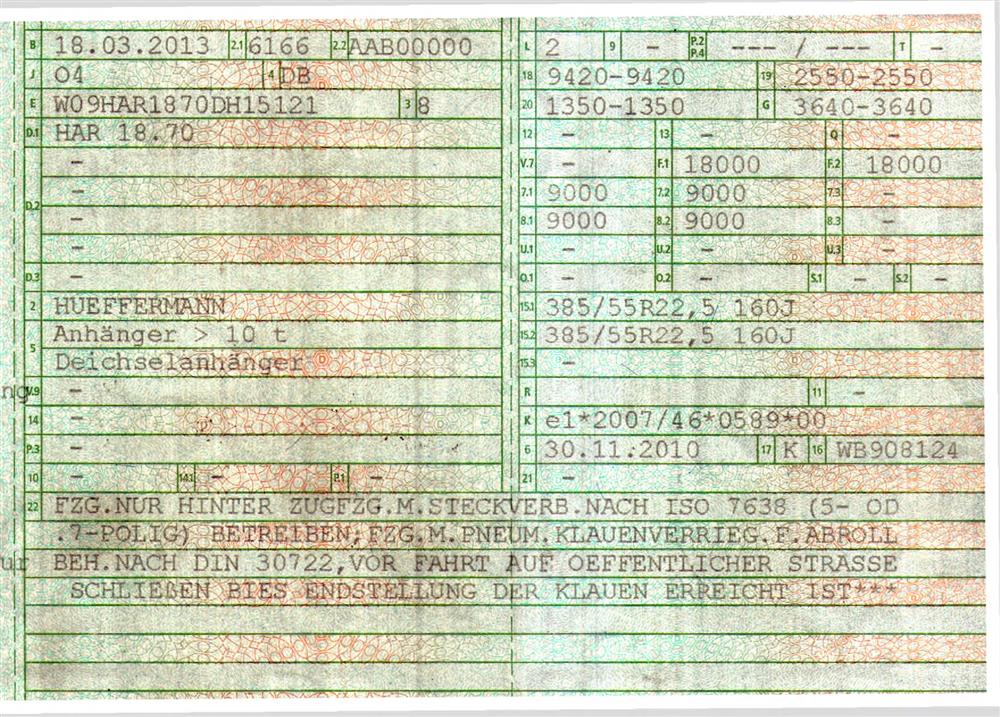 B 18.03.2013 2.1 6166 2.2 AAB00000
J O4 4 DB
E W09HAR1870DH15121 3 8
D.1 HAR 18.70
-
-
D.2
-
-
D.3 -
2 HUEFFERMANN
Anhänger > 10 t
5
Deichselanhänger
ng
V.9 -
14 -
P.3 -
10 - 14.1 - P.1 -
L 2 9 - P.2 P.4 --- / --- T -
18 9420-9420 19 2550-2550
20 1350-1350 G 3640-3640
12 - 13 - Q -
V.7 - F.1 18000 F.2 18000
7.1 9000 7.2 9000 7.3 -
8.1 9000 8.2 9000 8.3 -
U.1 - U.2 - U.3 -
O.1 - O.2 - S.1 - S.2 -
15.1 385/55R22,5 160J
15.2 385/55R22,5 160J
15.3 -
R 11 -
K e1*2007/46*0589*00
6 30.11.2010 17 K 16 WB908124
21 -
22 FZG.NUR HINTER ZUGFZG.M.STECKVERB.NACH ISO 7638 (5- OD
.7-POLIG) BETREIBEN;FZG.M.PNEUM.KLAUENVERRIEG.F.ABROLL
ur BEH.NACH DIN 30722,VOR FAHRT AUF OEFFENTLICHER STRASSE
SCHLIEßEN BIES ENDSTELLUNG DER KLAUEN ERREICHT IST***